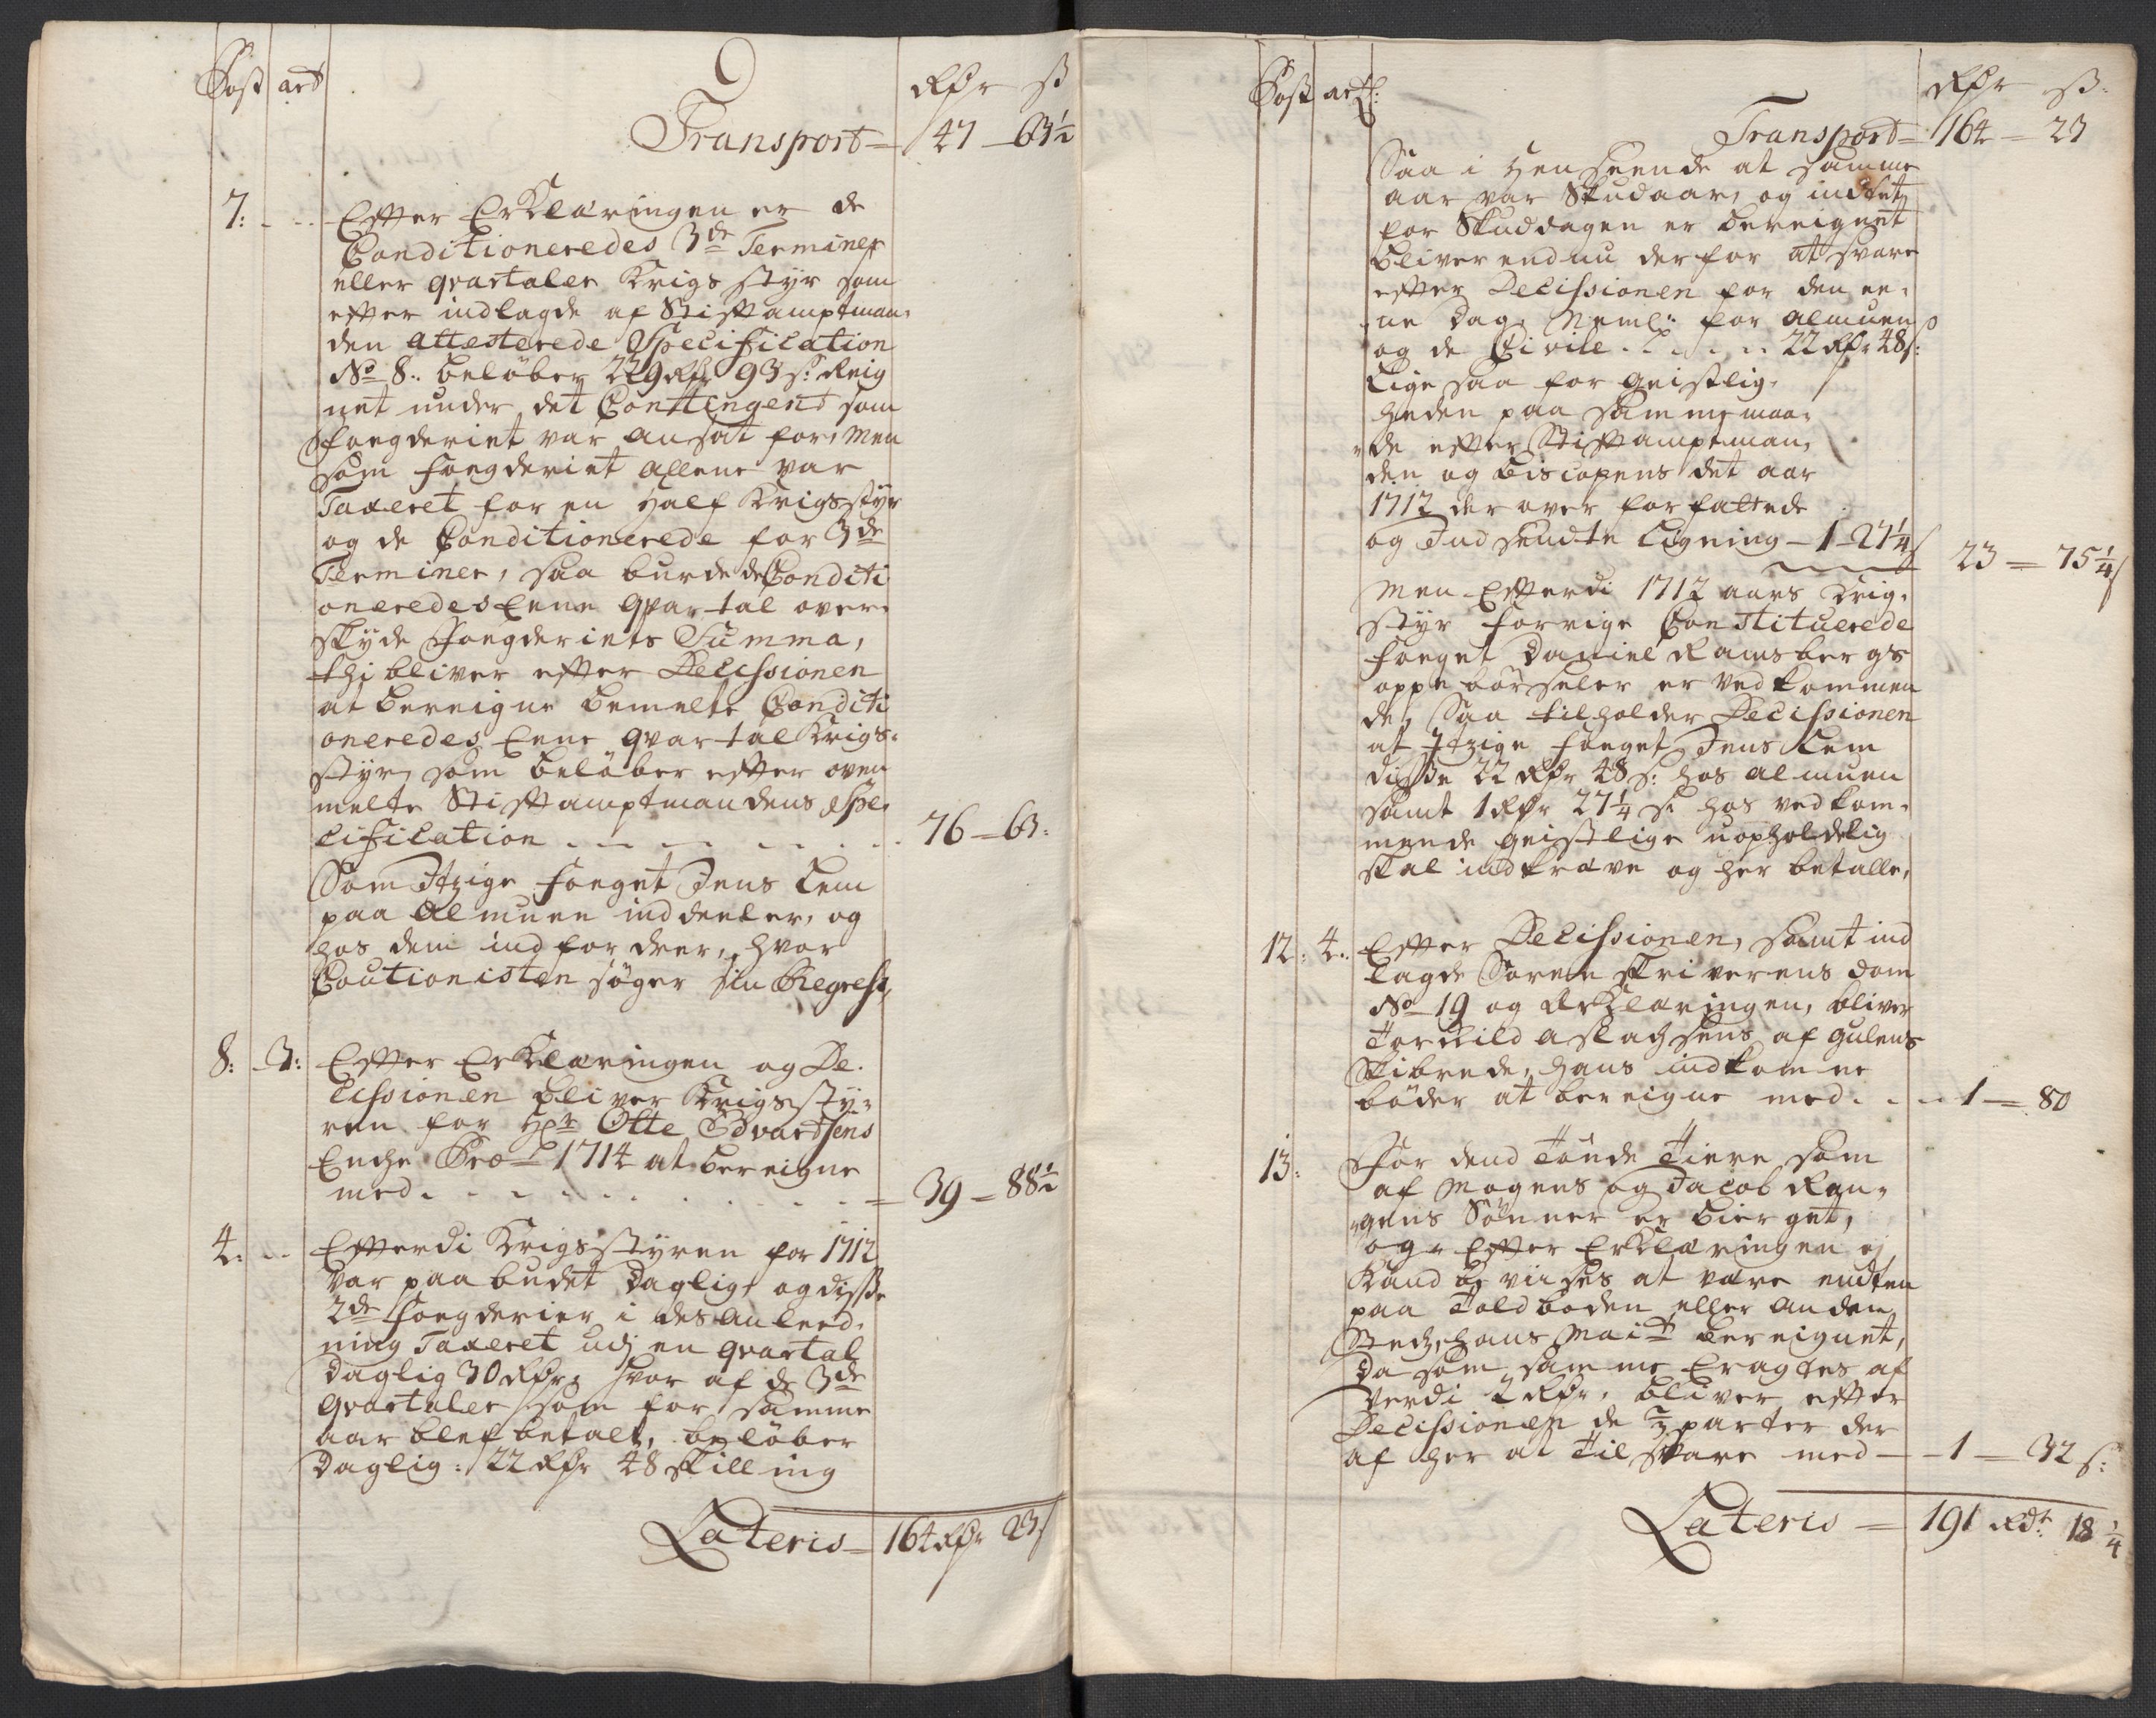 Post art
Rdr ß
Transport = 47 – 63½
7: Efter Erklæringen er de
Conditioneredes 3de Terminer
eller qvartaler Krigs styr som
efter indlagde af Stiftamptman-
den attesterede Specification
No 8: beløber 229 Rdr 93 s: Reig
net under det Contingent som
fogderiet var ansat for, Men
som fogderiet allene var
Taxeret for en half Krigsstyr
og de Conditionerede for 3de
Terminer, saa burde de Conditi
oneredes Eene qvartal over-
skyde Fogderiets Summa,
thj bliver efter Decissionen
at bereigne bemelte Conditi
oneredes Eene qvartal Krigs-
styr, som beløber efter oven
melte Stiftamptmandens Spe-
cification 76 – 63:
Som Itzige foget Jens Lem
paa Almuen inddeeler, og
hos dem indfordrer, hvor
Coutionisten søger sin Regress,
8: 3: Efter Erklæringen og De-
cissionen bliver Krigssty-
ren for Hr Otte Edvardsens
Enche Pro 1714 at bereigne
med = 39 – 88½
4: Efterdi Krigsstyren for 1712
var paabudet Daglig, og disse
2de Fogderier i des anleed-
ning Taxeret udj en qvartal
Daglig 30 Rdr, hvor af de 3de
qvartaler som for samme
aar blef betalt, beløber
Daglig: 22 Rdr 48 skilling
Lateris = 164 Rdr 23 s
Post art:
Rdr ß:
Transport = 164 – 23
Saa i Henseende at samme
aar var Skudaar, og indtet
for Skuddagen er bereignet
bliver endnu derfor at svare
efter Decissionen for den ee-
ne Dag, Neml: for Almuen
og de Civile 22 Rdr 48 s:
Lige saa for geistlig-
heden paa samme maa-
de efter Stiftamptman-
den og Biscopens det aar
1712 der over forfattede
og Indsendte Ligning – 1 – 27¼ s 23 = 75¼ s
Men Efterdi 1712 aars Krig-
styr forrige Constituerede
foget Daniel Ramsbergs
oppebørseler er vedkommen
de, Saa tilholder Decissionen
at Itzige foget Jens Lem
disse 22 Rdr 48 s: hos almuen
samt 1 Rdr 27¼ s: hos vedkom-
mende geistlige uopholdelig
skal indkræve og her betalle,
12: 4: Efter Decissionen, samt ind
lagde Sorenskriverens dom
No 19 og Erklæringen, bliver
Torkild Aslachsens af gulens
Skibrede, hans indkomne
bøder at bereigne med 1 – 80
13: For dend Tønde Tiere som
af Mogens og Jacob Ran-
gens Sønner er bierget,
og Efter Erklæringen ej
Kand beviises at være endten
paa Toldboden eller anden
Steds, hans Mait bereignet,
Da som samme Eragtes af
verdi 2 Rdr, bliver efter
Decissionen de ⅔ parter der
af her at tilsvare med – 1 – 32 s:
Lateris = 191 Rdr 18¼